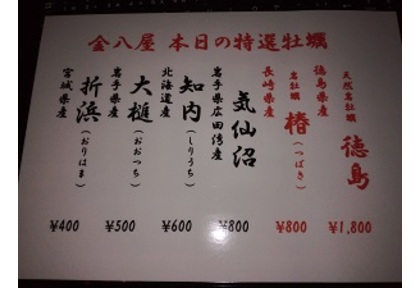 金八屋 本日の特選牡蠣
天然岩牡蠣
徳島
徳島県産
¥1,800
岩牡蠣
椿(つばき)
長崎県産
¥800
気仙沼
岩手県広田湾産
¥800
知内(しりうち)
北海道産
¥600
大槌(おおつち)
岩手県産
¥500
折浜(おりはま)
宮城県産
¥400